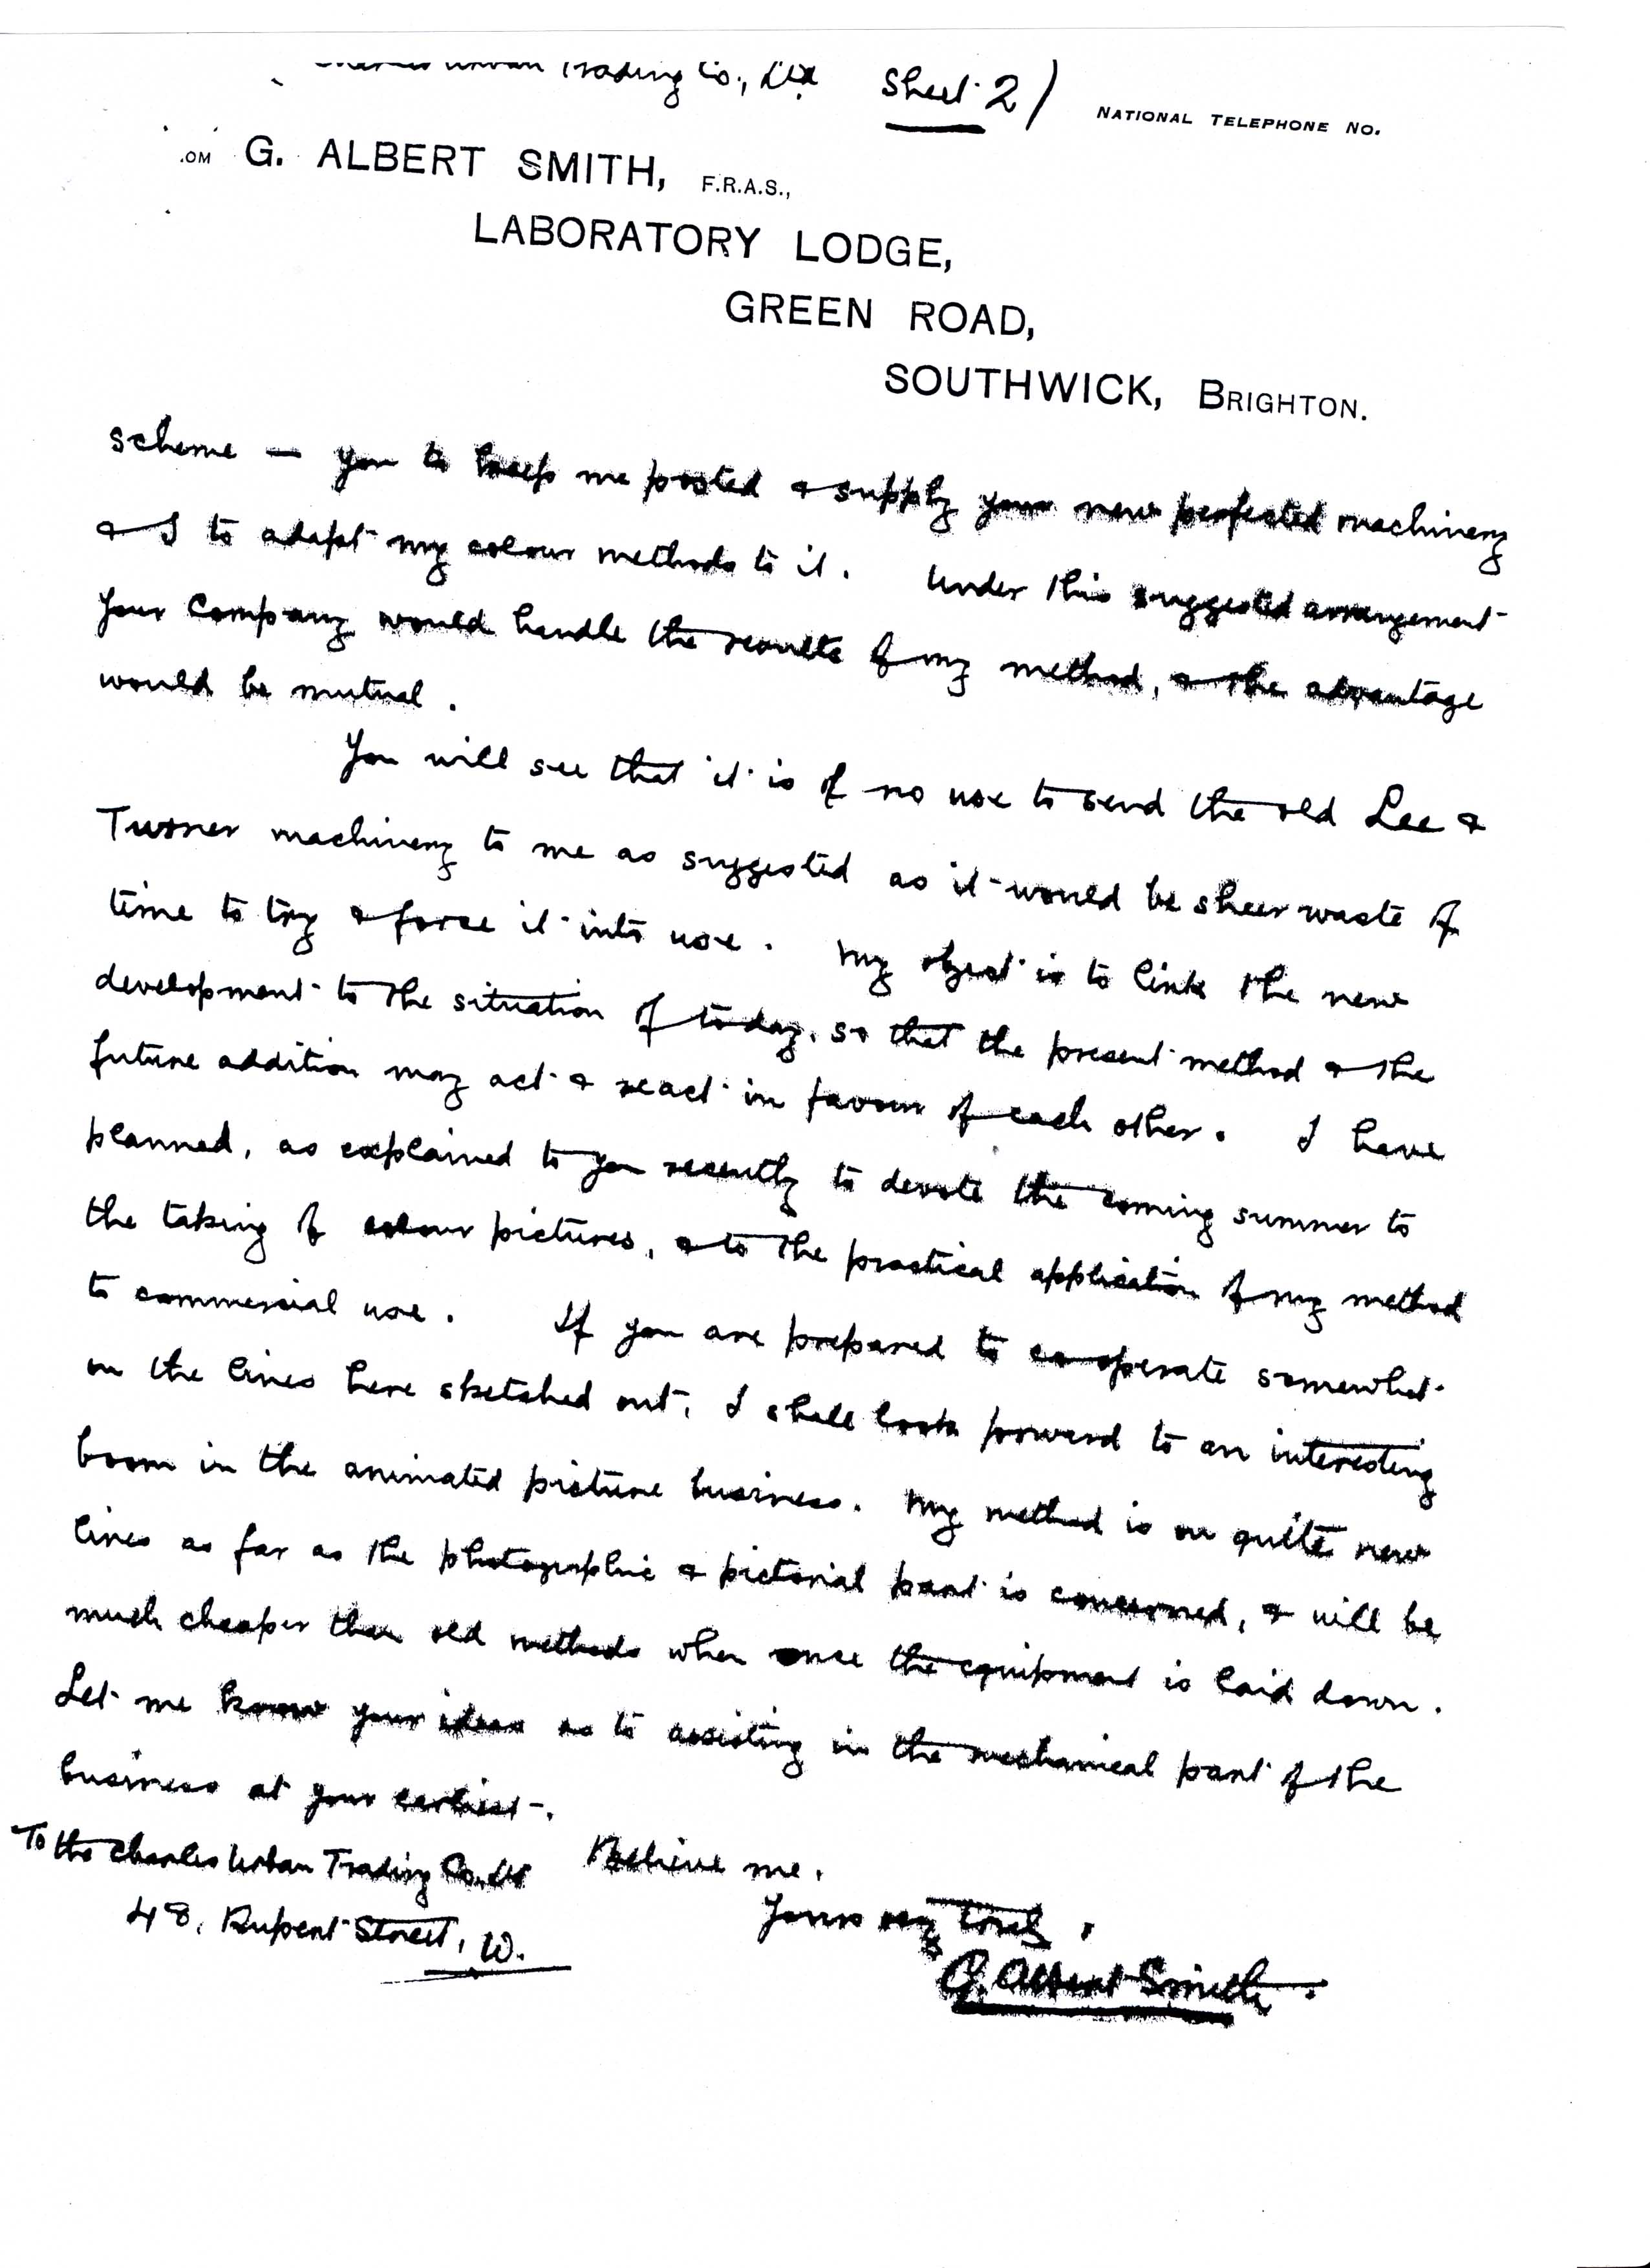 Trading Co., Ltd Sheet 2/
NATIONAL TELEPHONE NO.
OM G. ALBERT SMITH, F.R.A.S.,
LABORATORY LODGE,
GREEN ROAD,
SOUTHWICK, BRIGHTON.
scheme — you to keep me posted & supply your new perfected machinery
& I to adapt my colour methods to it. Under this suggested arrangement
your Company would handle the results of my method, & the advantage
would be mutual.
You will see that it is of no use to send the old Lee &
Turner machinery to me as suggested as it would be sheer waste of
time to try & force it into use. My object is to link the new
development to the situation of today, so that the present method & the
future addition may act & react in favour of each other. I have
planned, as explained to you recently to devote the coming summer to
the taking of colour pictures, & to the practical application of my method
to commercial use. If you are prepared to co-operate somewhat
on the lines here sketched out, I shall look forward to an interesting
boom in the animated picture business. My method is on quite new
lines as far as the photographic & pictorial part is concerned, & will be
much cheaper than old methods when once the equipment is laid down.
Let me know your ideas as to assisting in the mechanical part of the
business at your earliest.
To the Charles Urban Trading Co. Ltd
Believe me,
48, Rupert Street, W.
Yours very truly,
G. Albert Smith.